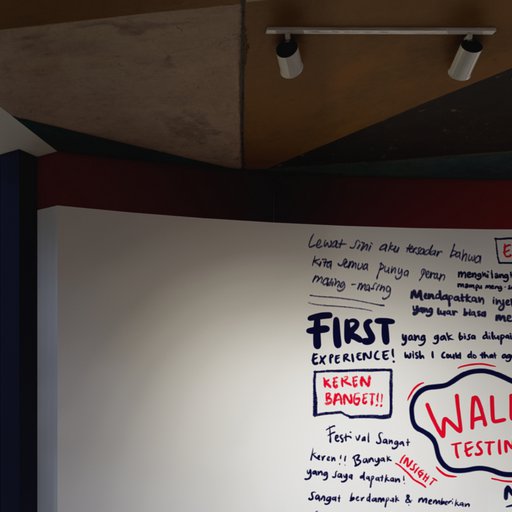 Lewat sini aku tersadar bahwa
kita semua punya peran
masing-masing
Mendapatkan
yang luar biasa
FIRST
EXPERIENCE!
yang gak bisa
wish I could do that
KEREN
BANGET!!
TESTIM
Festival Sangat
keren!! Banyak INSIGHT
yang saya dapatkan!
sangat berdampak & memberikan